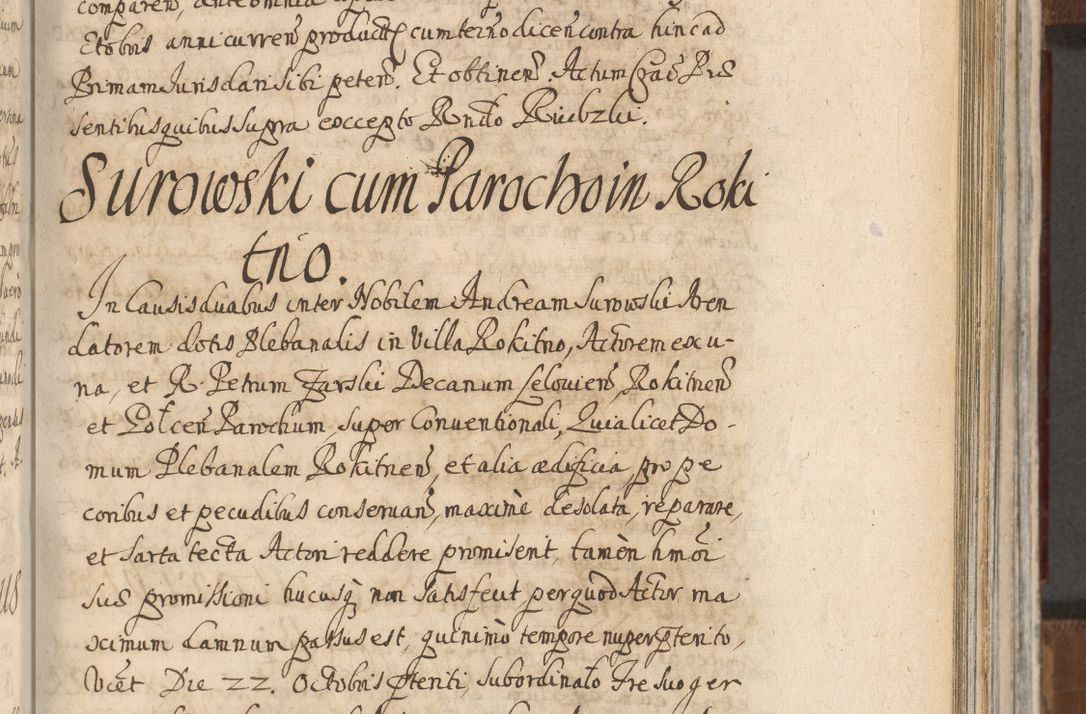 comparen, ante omnia
Octobris anni curren product cum termo dicen contra hinc ad
Primam Juris dari sibi peten. Et obtinen. Actum Cras Præ
sentibus quibus supra excepto Rndo Kicbzki.
Surowski cum Parocho in Roki
tno.
In Causis duabus inter Nobilem Andream Surowski Aren
datorem dotis Plebanalis in Villa Rokitno, Actorem ex u-
na, et R. Petrum Zarski Decanum Selouien, Rokitnen
et Polcen Parochum, super Conuentionali, Quia licet Do-
mum Plebanalem Rokitnen, et alia ædificia pro pe
coribus et pecudibus conseruan, maximè desolata, reparare,
et sarta tecta Actori reddere promiserit, tamèn hmoi
suæ promissioni hucusq non satisfecit per quod Actor ma
ximum damnum passus est, quinimò tempore nuper pterito,
Vict Die 22. Octobris pteriti, subordinato Fre suo ger